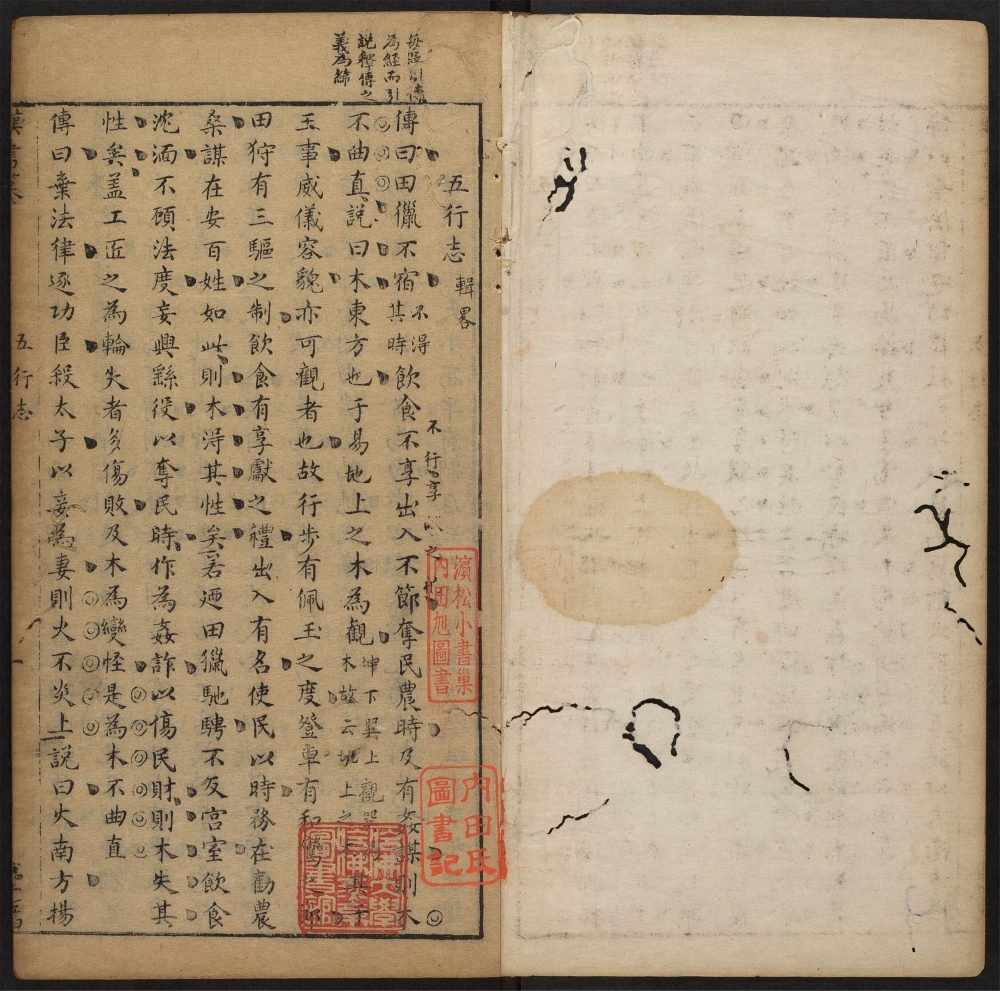 每段引傳
為經而引
說釋傳之
義為緯
五行志 輯畧
傳曰田獵不宿 不得其時 飲食不享出入不節奪民農時及有姦謀則木
不行享 之
不曲直說曰木東方也于易地上之木為觀 坤下巽上觀 木故云地上之
王事威儀容貌亦可觀者也故行步有佩玉之度登車有和鸞之
田狩有三驅之制飲食有享獻之禮出入有名使民以時務在勸農
桑謀在安百姓如此則木淂其性矣若迺田獵馳騁不反宮室飲食
沈湎不顧法度妄興繇役以奪民時作為姦詐以傷民財則木失其
性矣盖工匠之為輪矢者多傷敗及木為變怪是為木不曲直
傳曰棄法律逐功臣殺太子以妾為妻則火不炎上說曰火南方揚
五行志
濱松小書巢
內田旭圖書
內田氏
圖書記